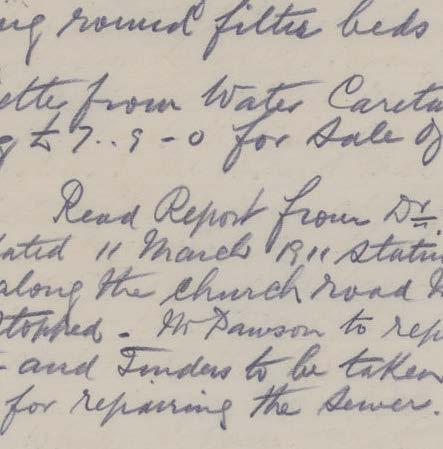 ing round filter beds
etter from Water Careta
g £7..9-0 for Sale of
Read Report from Dr
dated 11 March 1911 statin
along the church road
Stopped - Mr Dawson to rep
- and Tenders to be taken
for repairing the Sewer.